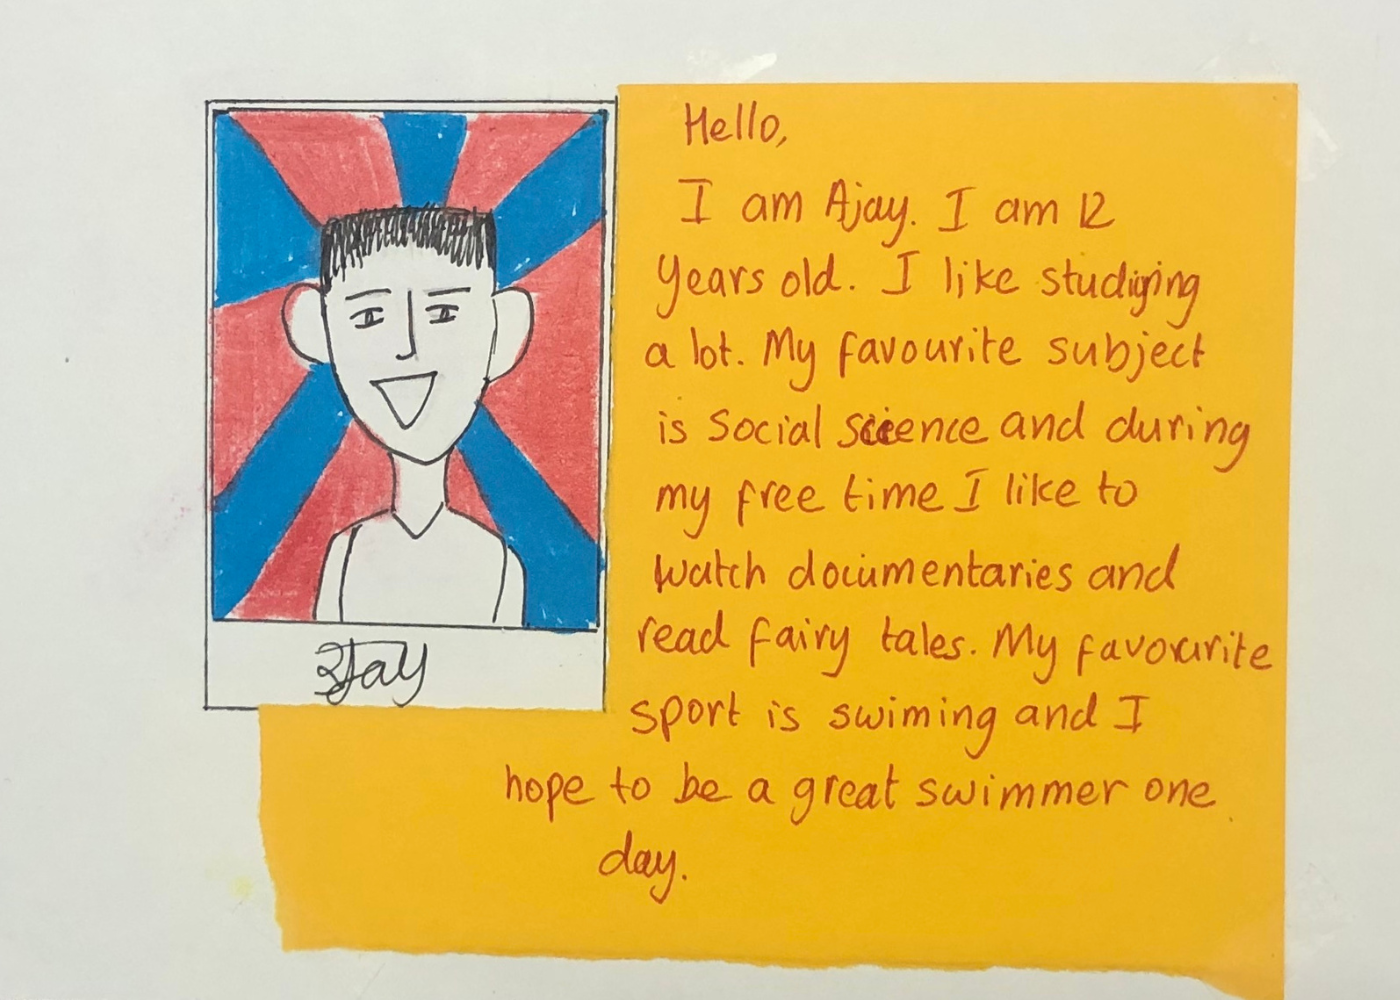 Hello,
I am Ajay. I am 12
years old. I like studying
a lot. My favourite subject
is social science and during
my free time I like to
watch documentaries and
read fairy tales. My favourite
sport is swiming and I
hope to be a great swimmer one
day.